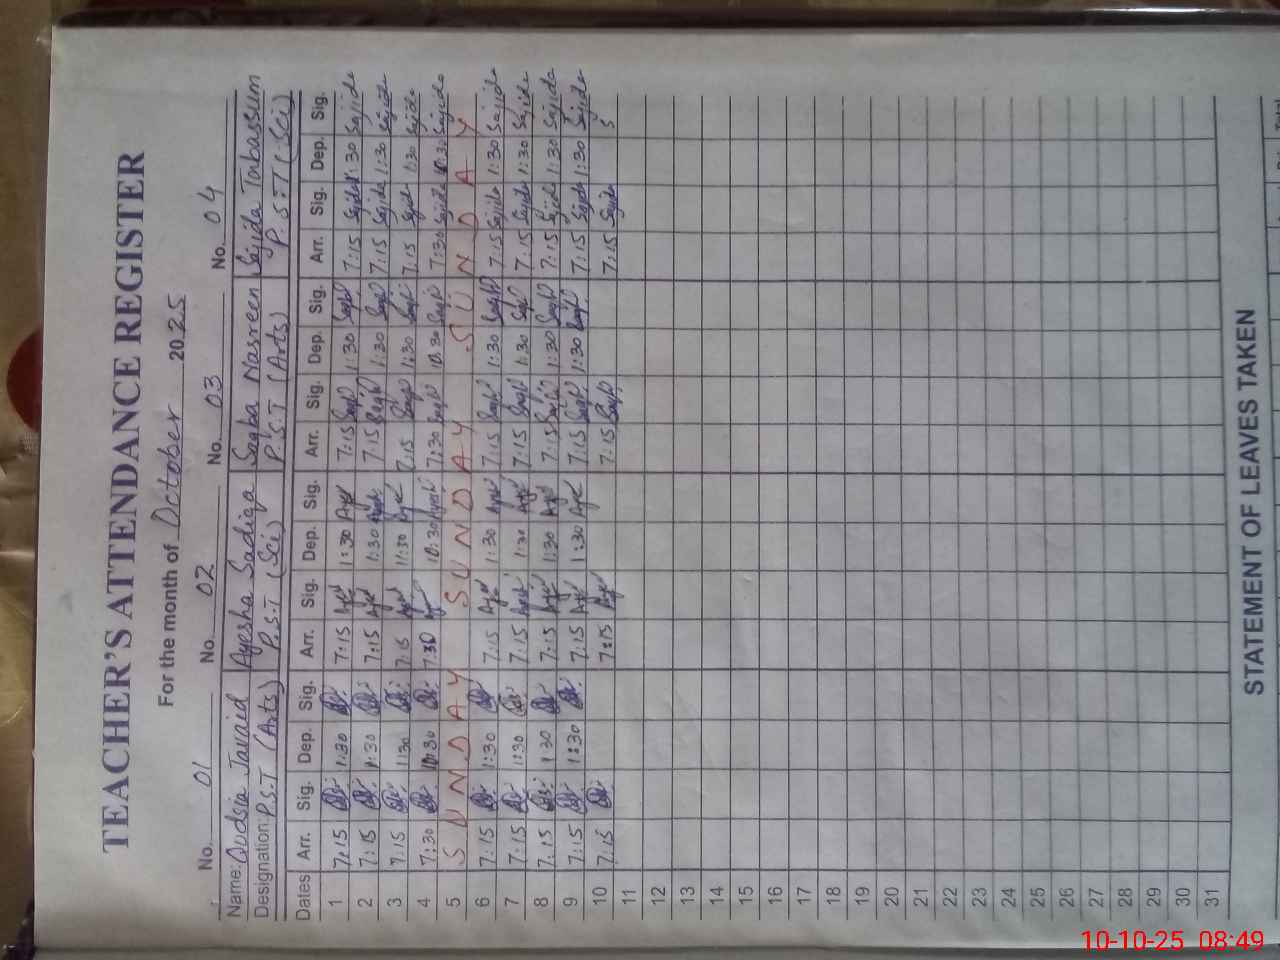 TEACHER'S ATTENDANCE REGISTER
For the month of October 2025
No. 01 No. 02 No. 03 No. 04
Name: Qudsia Javaid Ayesha Sadiqa Saqba Nasreen Sajida Tabassum
Designation: P.S.T (Arts) P.S.T (Sci) P.S.T (Arts) P.S.T (Sci)
Dates Arr. Sig. Dep. Sig. Arr. Sig. Dep. Sig. Arr. Sig. Dep. Sig. Arr. Sig. Dep. Sig.
1 7:15 1:30 7:15 1:30 7:15 1:30 7:15 Sajida 1:30 Sajida
2 7:15 1:30 7:15 1:30 7:15 1:30 7:15 Sajida 1:30 Sajida
3 7:15 1:30 7:15 11:30 7:15 1:30 7:15 Sajida 1:30 Sajida
4 7:30 10:30 7:30 10:30 7:30 10:30 7:30 Sajida 10:30 Sajida
5 SUNDAY SUNDAY SUNDAY
6 7:15 1:30 7:15 1:30 7:15 1:30 7:15 Sajida 1:30 Sajida
7 7:15 1:30 7:15 1:30 7:15 1:30 7:15 Sajida 1:30 Sajida
8 7:15 1:30 7:15 1:30 7:15 1:30 7:15 Sajida 1:30 Sajida
9 7:15 1:30 7:15 1:30 7:15 1:30 7:15 Sajida 1:30 Sajida
10 7:15 7:15 7:15 7:15 Sajida S
11
12
13
14
15
16
17
18
19
20
21
22
23
24
25
26
27
28
29
30
31
STATEMENT OF LEAVES TAKEN
10-10-25 08:49